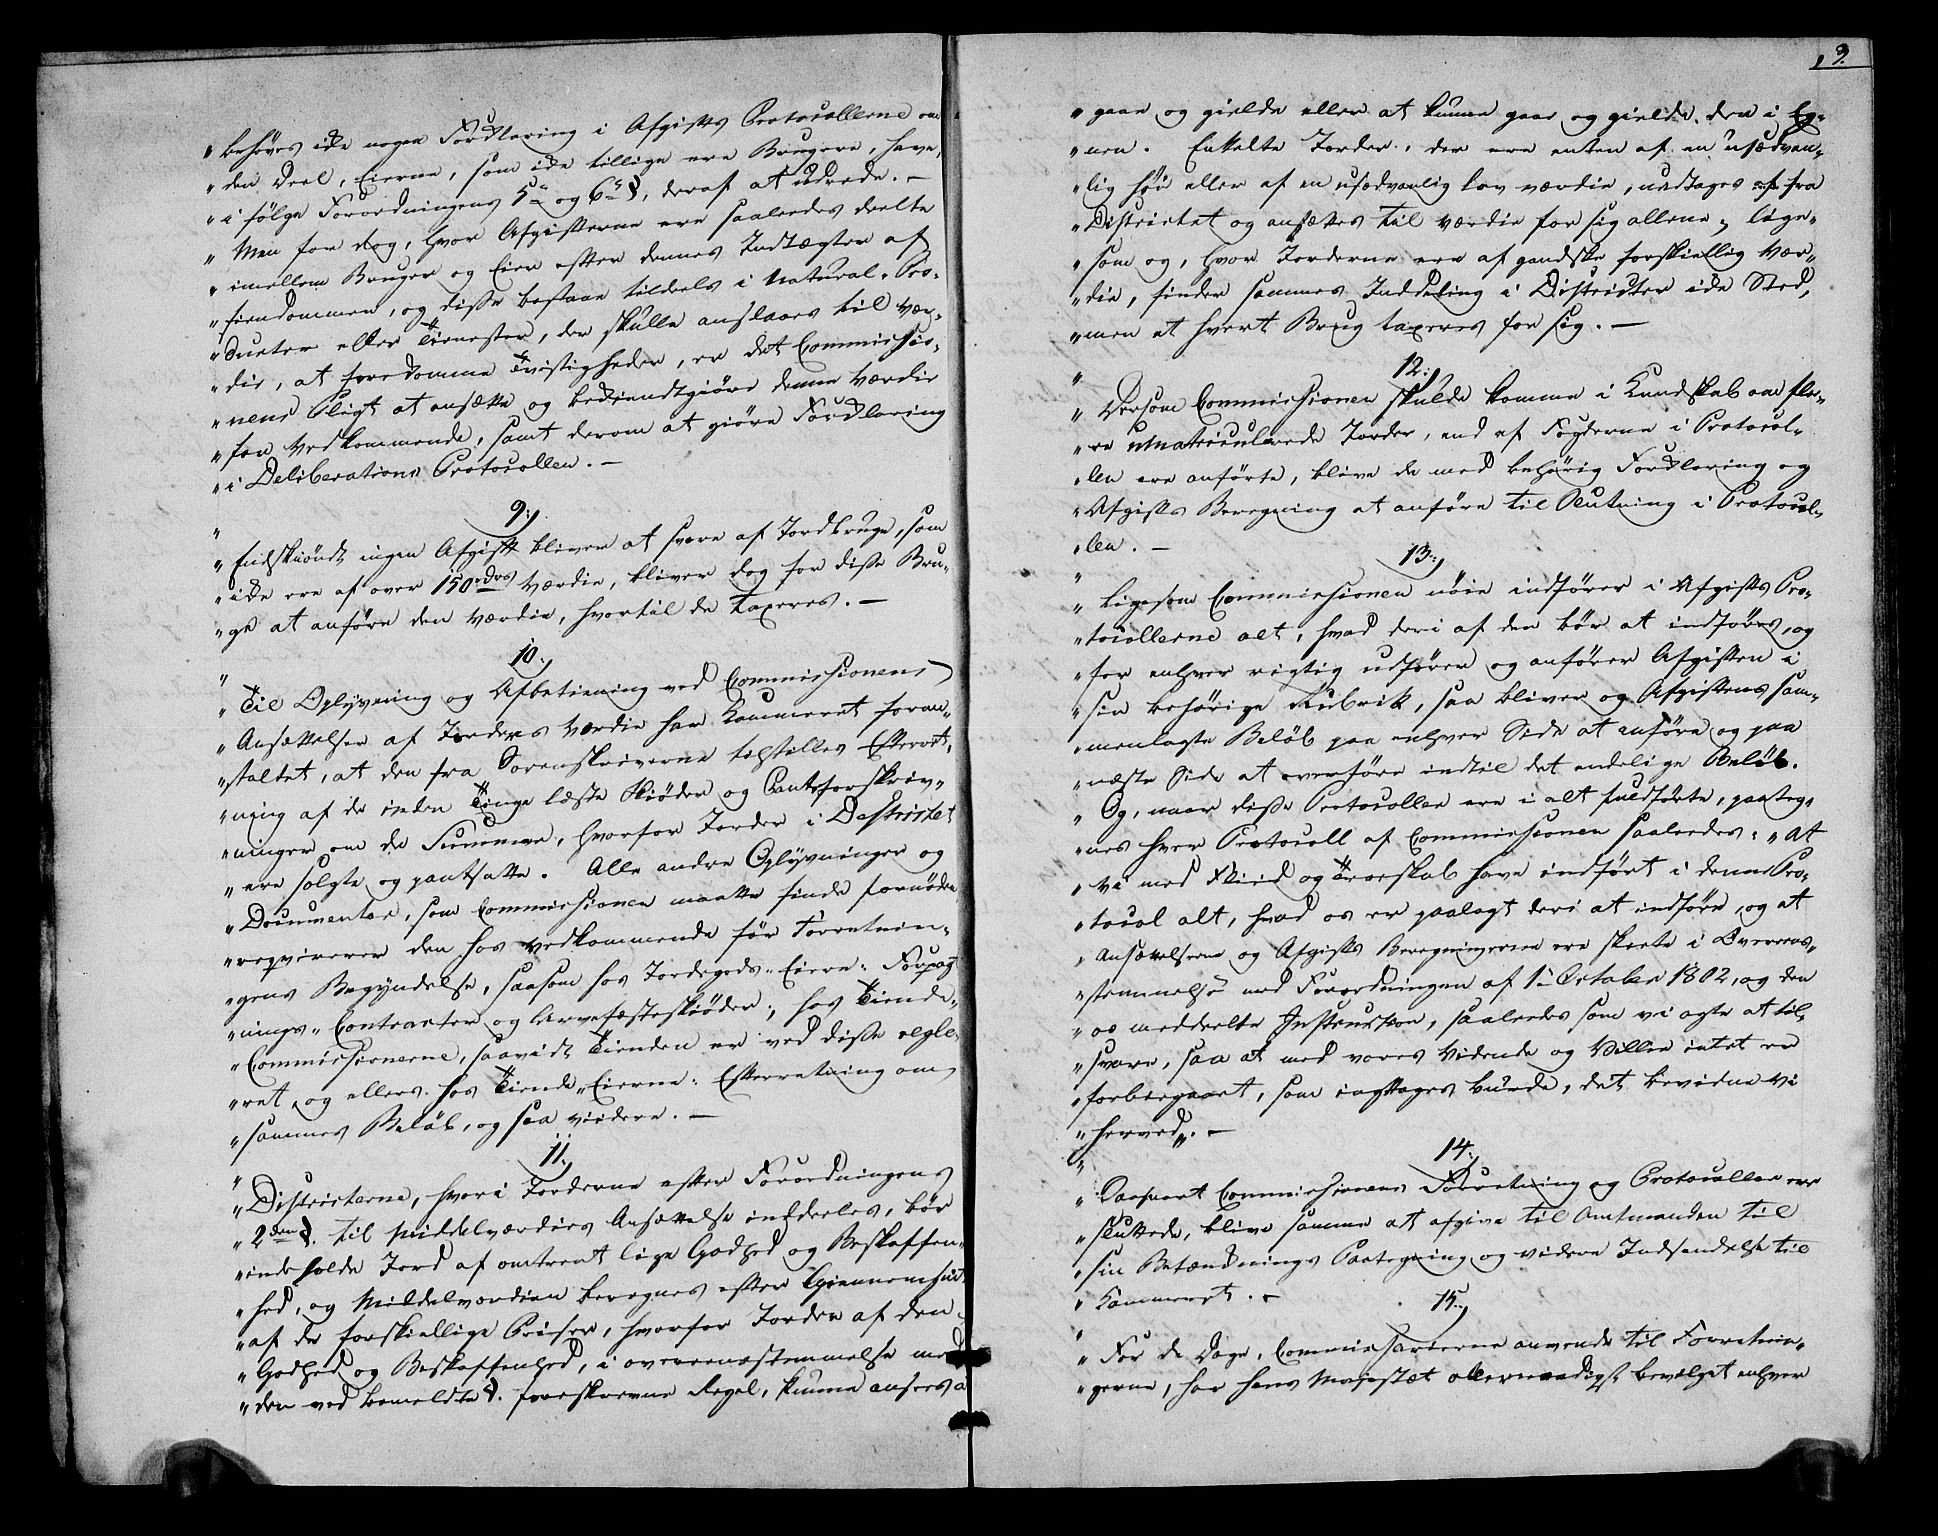 " behøves ikke nogen Forklaring i Afgifts Protocollerne om
" den Deel, Eierne, som ikke tillige ere Brugere, have,
" i følge Forordningens 5te og 6te §, deraf at udrede. —
" Men for dog, hvor Afgifterne ere saaledes deelte
" imellem Bruger og Eier efter dennes Indtægter af
" Eiendommen, og disse bestaae tildeels i Natural-Pro-
" ducter eller Tienester, der skulle anslaaes til Vær-
" die, at forekomme Tvistigheder, er det Commissio-
" nens Pligt at ansætte og bekiendtgiøre denne Værdie
" for Vedkommende, samt derom at giøre Forklaring
" i Deliberations Protocollen. —
9.
" Endskiøndt ingen Afgift bliver at svare af Jordbruge, som
" ikke ere af over 150 rdrs Værdie, bliver dog for disse Bru-
" ge at anføre den Værdie, hvortil de taxeres. —
10.
" Til Oplysning og Afbetiening ved Commissionens
" Ansættelser af Jordens Værdie har Kammeret foran-
" staltet, at den fra Sorenskriverne tilstilles Efterret-
" ning af de inden Tinge læste Skiøder og Panteforskriv-
" ninger om de Summer, hvorfor Jorder i Districtet
" ere solgte og pantsatte. Alle andre Oplysninger og
" Documenter, som Commissionen maatte finde fornødne
" reqvirerer den hos Vedkommende før Forretnin-
" gens Begyndelse, saasom hos Jordegods-Eiere: Forpagt-
" nings-Contracter og Arvefæsteskiøder; hos Tiende-
" Commissionerne, saavidt Tienden er ved disse regle-
" ret, og ellers hos Tiende-Eierne: Efterretning om
" sammes Beløb, og saa videre. —
11.
" Districterne, hvori Jorderne efter Forordningens
" 2den §. til Middelværdies Ansættelse inddeeles, bør
" indeholde Jord af omtrent lige Godhed og Beskaffen-
" hed, og Middelværdien beregnes efter Giennemsnit
" af de forskiellige Priser, hvorfor Jorder af den
" Godhed og Beskaffenhed, i overeensstemmelse med
" den ved bemeldte §. foreskrevne Regel, kunne ansees a
9.
" gaae og gielde eller at kunne gaae og gielde der i Eg-
" nen. Enkelte Jorder, der ere enten af en usædvan-
" lig høi eller af en usædvanlig lav værdie, undtages fra
" Districtet og ansættes til værdie for sig allene; lige-
" som og, hvor Jorderne ere af gandske forskiellig Vær-
" die, finder sammes Inddeling i Districter ikke Sted,
" men at hvert Brug taxeres for sig. —
12.
" Dersom Commissionen skulde komme i Kundskab om fle-
" re umatriculerede Jorder, end af Fogderne i Protocol-
" len ere anførte, blive de med behørig Forklaring og
" Afgifts Beregning at anføre til Slutning i Protocol-
" len. —
13.
" Ligesom Commissionen nøie indfører i Afgifts Pro-
" tocollerne alt, hvad deri af den bør at indføres, og
" for enhver rigtig udfører og anfører Afgiften i
" sin behørige Rubrik, saa bliver og Afgiftens sam-
" menlagte Beløb paa enhver Side at anføre og paa
" næste Side at overføre indtil det endelige Beløb.
" Og, naar disse Protocoller ere i alt fuldførte, paateg-
" nes hver Protocoll af Commissionen saaledes: "At
" vi med Fliid og Troeskab have indført i denne Pro-
" tocol alt, hvad os er paalagt deri at indføre, og at
" Ansættelserne og Afgifts Beregningerne ere skeete i Overeens-
" stemmelse med Forordningen af 1te October 1802, og den
" os meddeelte Instruction, saaledes som vi agte at til-
" svare, saa at med vores Vidende og Villie intet er
" forbigaaet, som iagttages burde, det bevidne vi
" herved". —
14.
" Saasnart Commissionens Forretning og Protocoller ere
" sluttede, blive samme at afgive til Amtmanden til
" sin Betænknings Paategning og videre Indsendelse til
" Kammeret. —
15.
" For de Dage, Commissairerne anvende til Forretnin-
" gerne, har hans Majestæt allernaadigst bevilget enhver